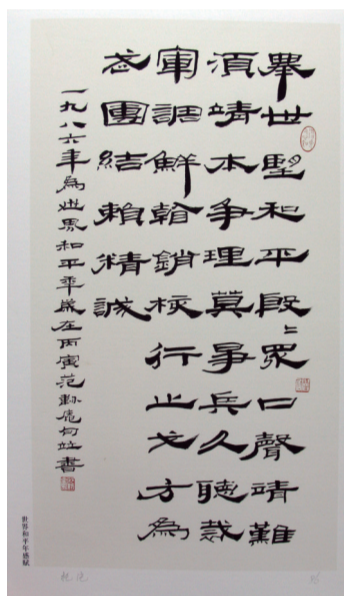 舉世望和平殷〻眾口聲靖難
須靖本爭理莫爭兵久聽裁
軍調鮮銷核行止戈方為
武團結賴精誠
一九八六年為世界和平年歲在丙寅范韌庵句並書
世界和平年感赋